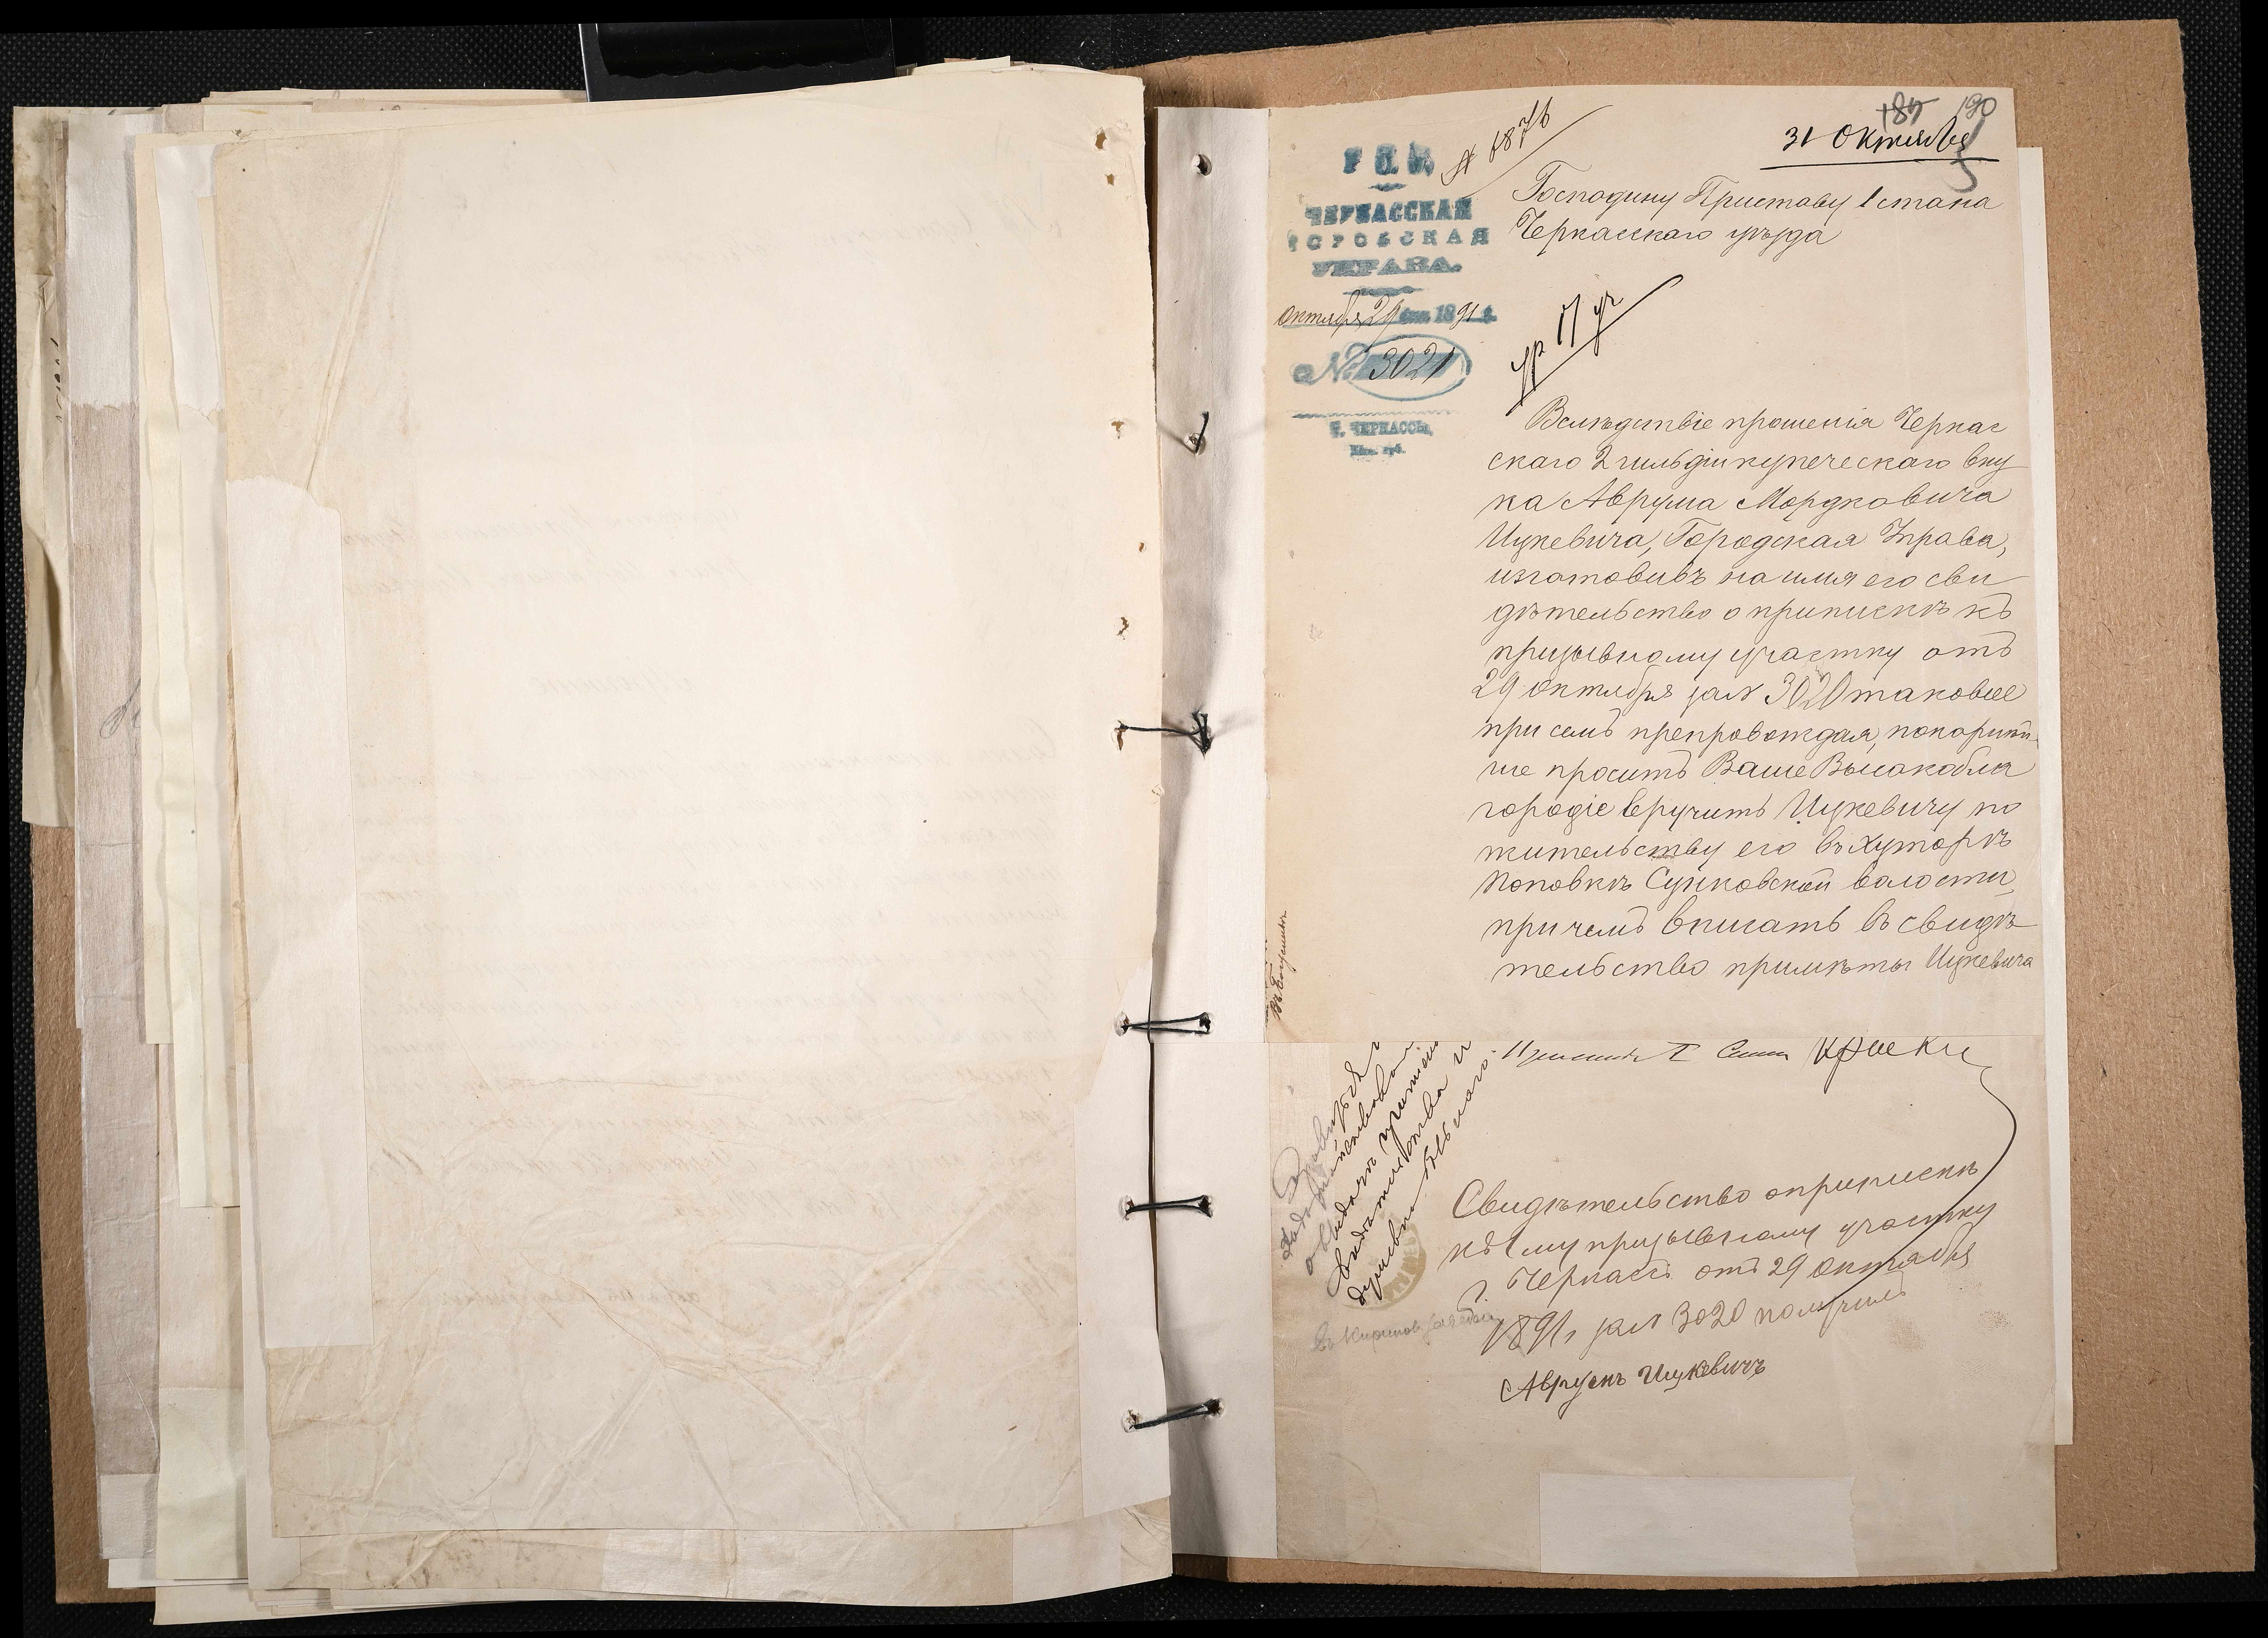 189 190
31 Октября
№ 1876
Р. П. В.
ЧЕРКАССКАЯ
ГОРОДСКАЯ
УПРАВА.
Октября 29 дня 1891 г.
№ 3021
Г. ЧЕРКАССЫ,
Кіев. губ.
Господину Приставу 1 стана
Черкасскаго уѣзда
Вслѣдствіе прошенія Черкас
скаго 2 гильдіи купеческаго вну
ка Аврума Мордковича
Цукевича, Городская Управа,
изготовивъ на имя его сви
дѣтельство о припискѣ къ
призывному участку отъ
29 Октября за № 3020 таковое
при семъ препровождая, покорнѣй
ше проситъ Ваше Высокобла
городіе вручить Цукевичу по
жительству его въ хуторѣ
Поповкѣ Сунковской волости,
при чемъ вписать въ свидѣ
тельство примѣты Цукевича
Свидѣтельство о припискѣ
къ 1му призывному участку
г. Черкассъ отъ 29 Октября
1891 г за № 3020 получилъ
Аврумъ Цукевичъ